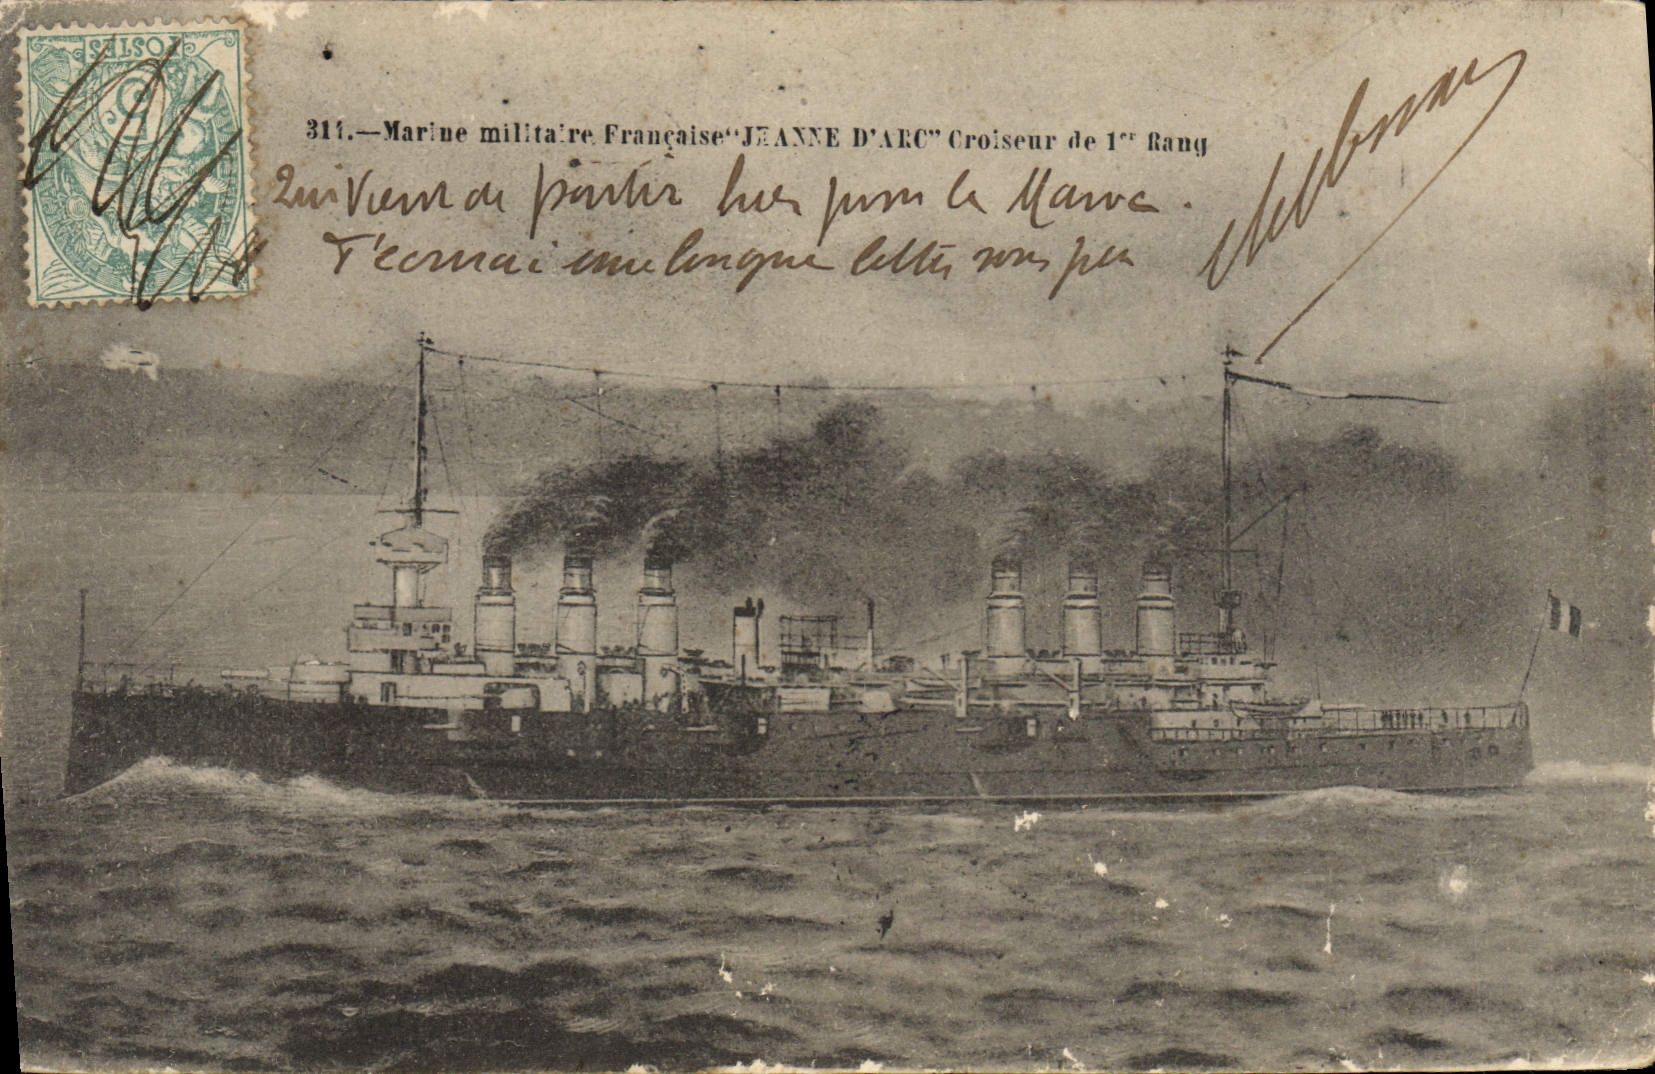 POSTES
311.—Marine militaire Française "JEANNE D'ARC" Croiseur de 1er Rang
Qui vient de partir hier pour le Maroc.
T'écrirai une longue lettre sous peu